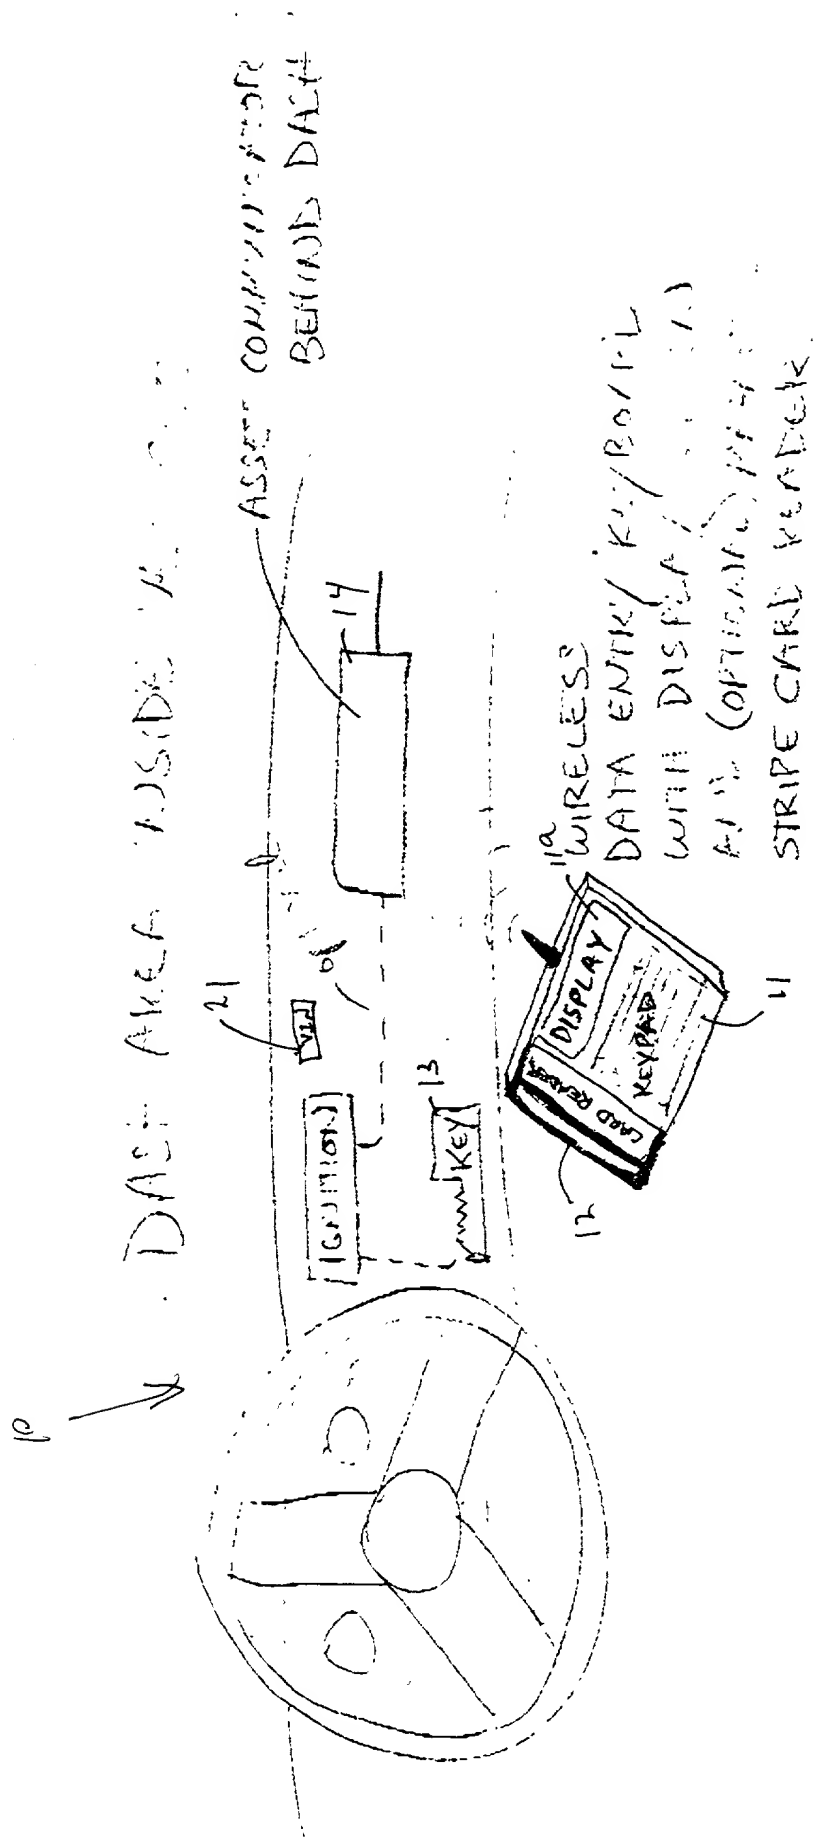 10
DASH AREA INSIDE
ASSET COMMUNICATOR
BEHIND DASH
21
VIN
14
IGNITION
13
KEY
11a
WIRELESS
DATA ENTRY KEYBOARD
WITH DISPLAY
(OPTIONAL)
STRIPE CARD READER
DISPLAY
KEYPAD
CARD READER
12
11